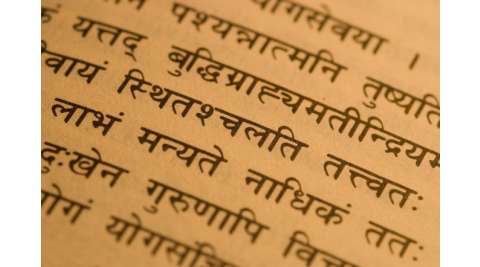 योगसेवया ।
पश्यन्नात्मनि तुष्यति
कं यत्तद् बुद्धिग्राह्यमतीन्द्रियम
वायं स्थितश्चलति तत्त्वतः
लाभं मन्यते नाधिकं ततः
दुःखेन गुरुणापि विच
योगं योगसंज्ञि